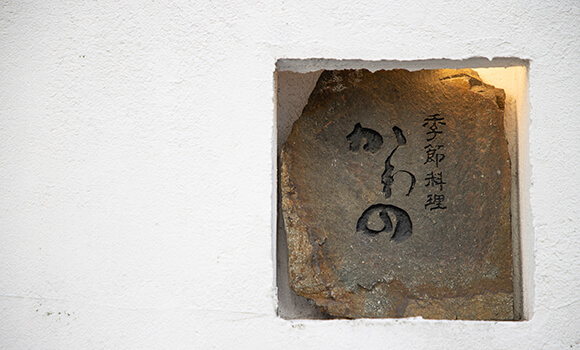 季節料理
かわの